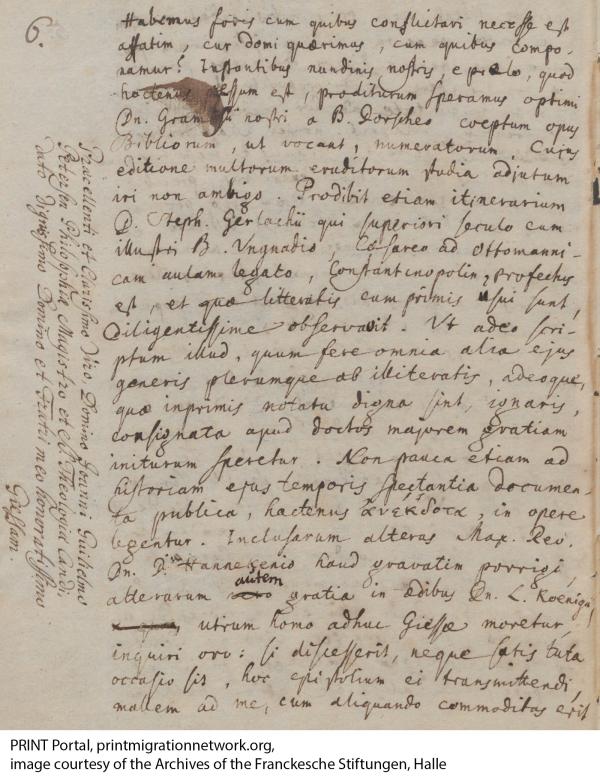 6.
Habemus foris cum quibus conflictari necesse est
affatim, cur domi quærimus, cum quibus compo-
namur? Instantibus nundinis nostris, e prelo, quod
hactenus fessum est, proditurum speramus optimi
Dn. nostri a B. Dorscheo coeptum opus
Bibliorum, ut vocant, numeratorum, Cujus
editione multorum eruditorum studia adjutum
iri non ambigo. Prodibit etiam itinerarium
D. Steph. Gerlachii qui superiori seculo cum
illustri B. Ungnadio, Cæsareo ad Ottomanni-
cam aulam legato, Constantinopolin, profectus
est, et quæ litteratis cum primis usui sunt,
Diligentissime observavit. Ut adeo scri-
ptum illud, quum fere omnia alia ejus
generis plerumque ab illiteratis, adeoque,
quæ inprimis notatu digna sint, ignaris,
consignata apud doctos majorem gratiam
initurum speretur. Non pauca etiam ad
historiam ejus temporis spectantia documen-
ta publica, hactenus ἀνέκδοτα, in opere
legentur. Inclusarum alteras Max. Rev.
Dn. D. Hannekenio haud gravatim porrigi,
alterarum autem gratia in ædibus Dn. L. Koenigii,
utrum homo adhuc Giessæ moretur,
inquiri oro: si discesserit, neque satis tuta
occasio sit, hoc epistolium ei transmittendi,
mallem ad me, cum aliquando commoditas erit
Præcellenti et Clarissimo Viro Domino Joanni Guilhelmo
Petersen Philosophiæ Magistro et SS. Theologiæ Candi-
dato dignissimo Domino et Fautori meo honoratissimo
Giessam.
PRINT Portal, printmigrationnetwork.org,
image courtesy of the Archives of the Franckesche Stiftungen, Halle